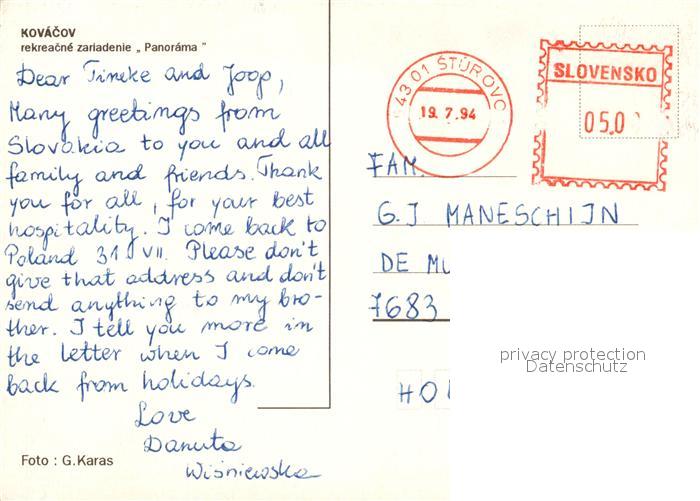 KOVÁČOV
rekreačné zariadenie „ Panoráma "
Dear Tineke and Joop,
Many greetings from
Slovakia to you and all
family and friends. Thank
you for all, for your best
hospitality. I come back to
Poland 31 VII. Please don't
give that address and don't
send anything to my bro-
ther. I tell you more in
the letter when I come
back from holidays.
Love
Danuta
Wiśniewska
Foto : G.Karas
43 01 ŠTÚROVO
19.7.94
SLOVENSKO
05.0
FAM.
G.J MANESCHIJN
DE MU
7683
HOL
privacy protection
Datenschutz